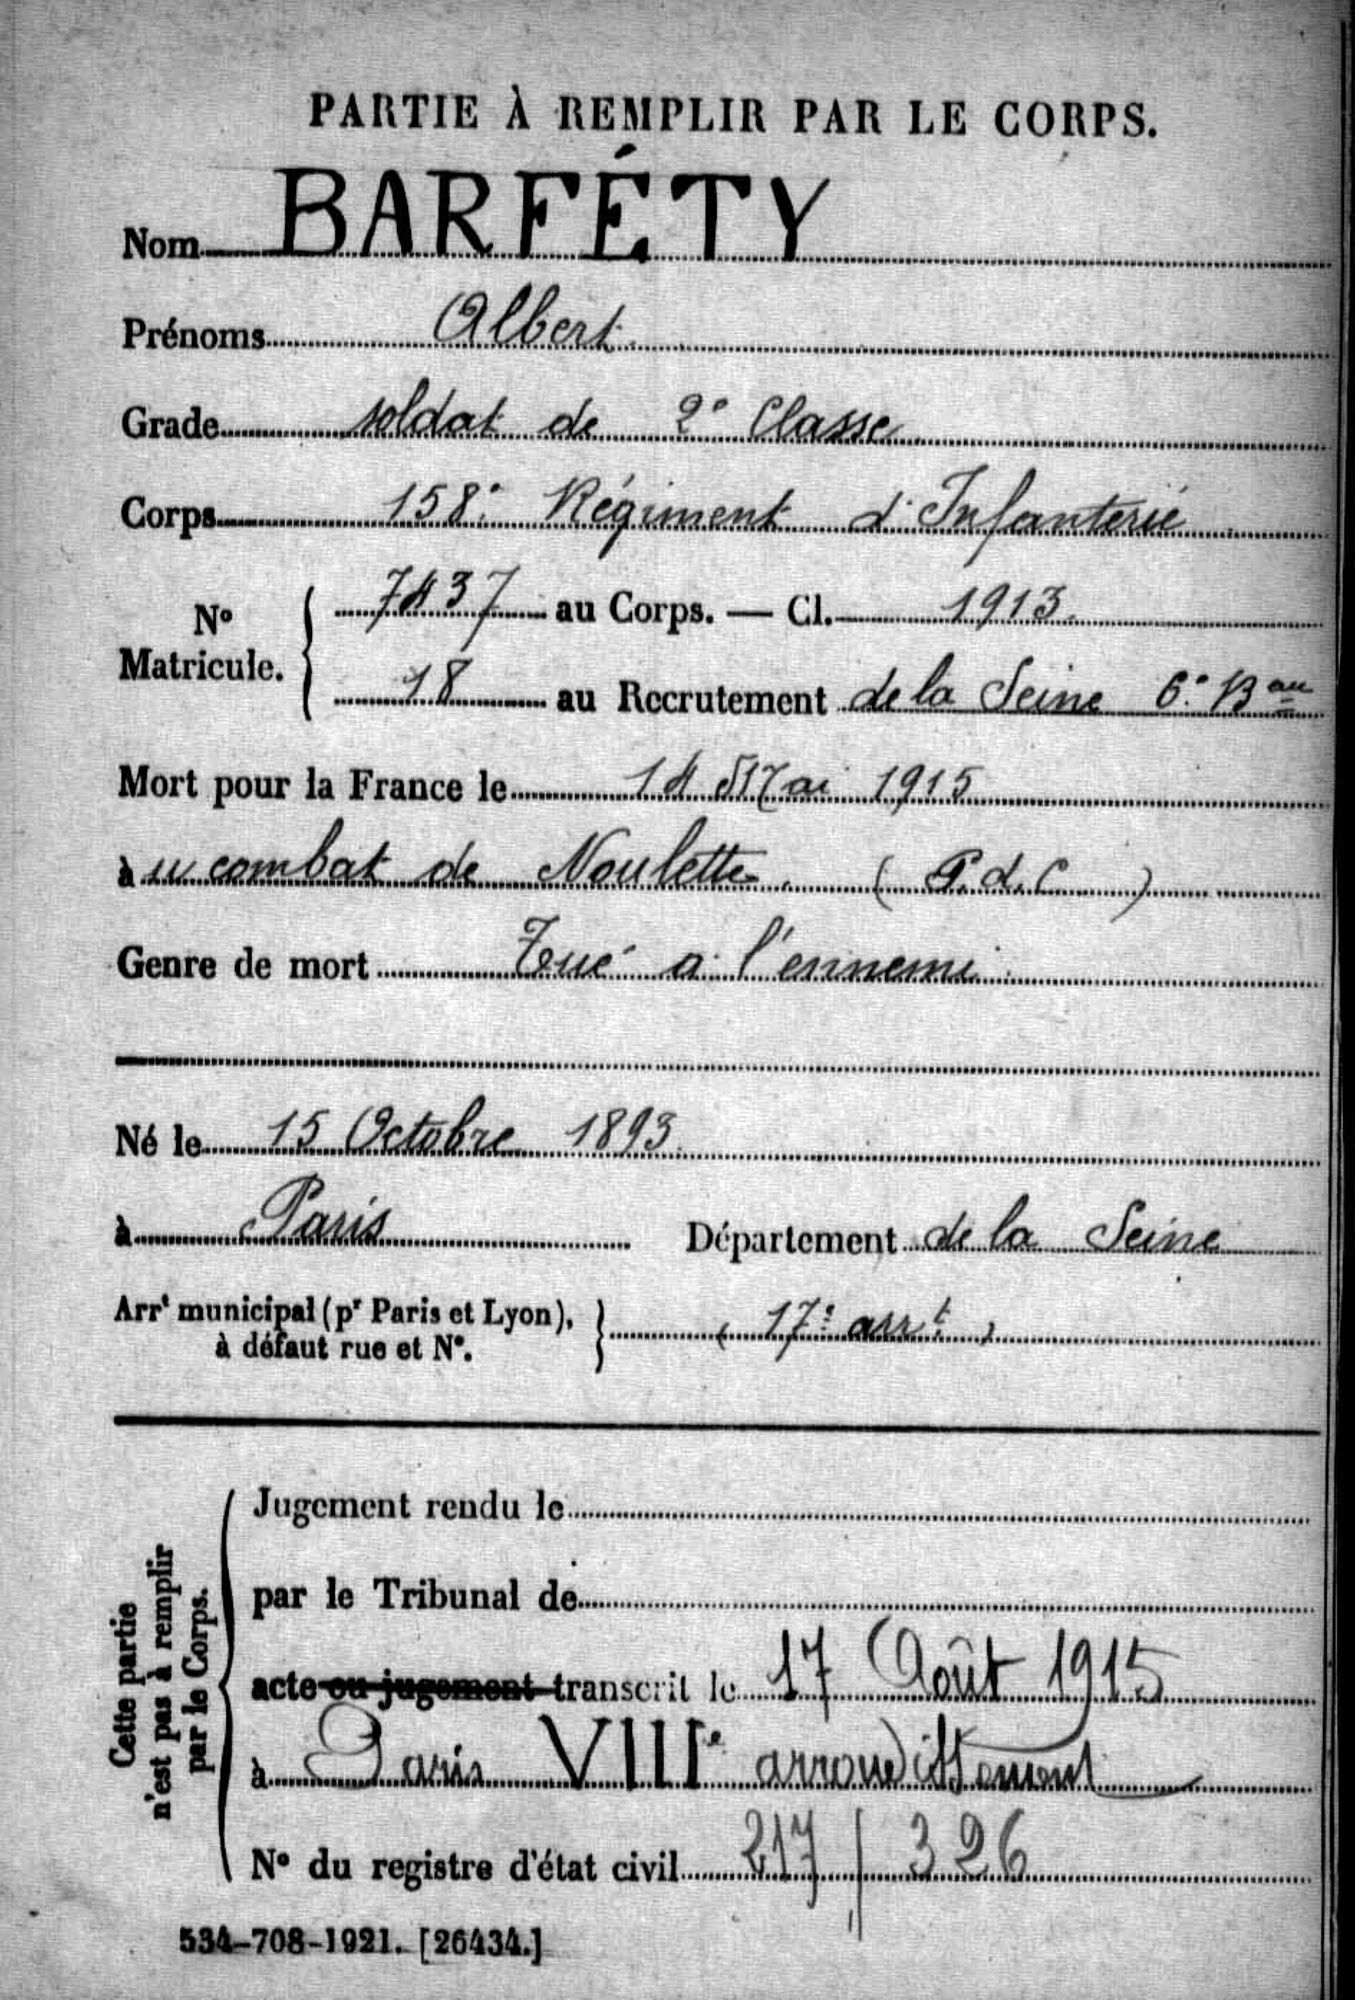 PARTIE À REMPLIR PAR LE CORPS.
Nom BARFÉTY
Prénoms Albert.
Grade soldat de 2e Classe
Corps 158e Régiment d'Infanterie
No Matricule. { 7437 au Corps. — Cl. 1913.
18 au Recrutement de la Seine 6e Bau
Mort pour la France le 14 Mai 1915
au combat de Noulette. (P.d.C)
Genre de mort Tué à l'ennemi.
Né le 15 Octobre 1893.
à Paris Département de la Seine
Arrt municipal (pr Paris et Lyon), à défaut rue et No. } (17e arrt)
Cette partie n'est pas à remplir par le Corps.
Jugement rendu le
par le Tribunal de
acte ou jugement transcrit le 17 Août 1915
à Paris VIIIe arrondissement
No du registre d'état civil 217 / 326
534-708-1921. [26434.]